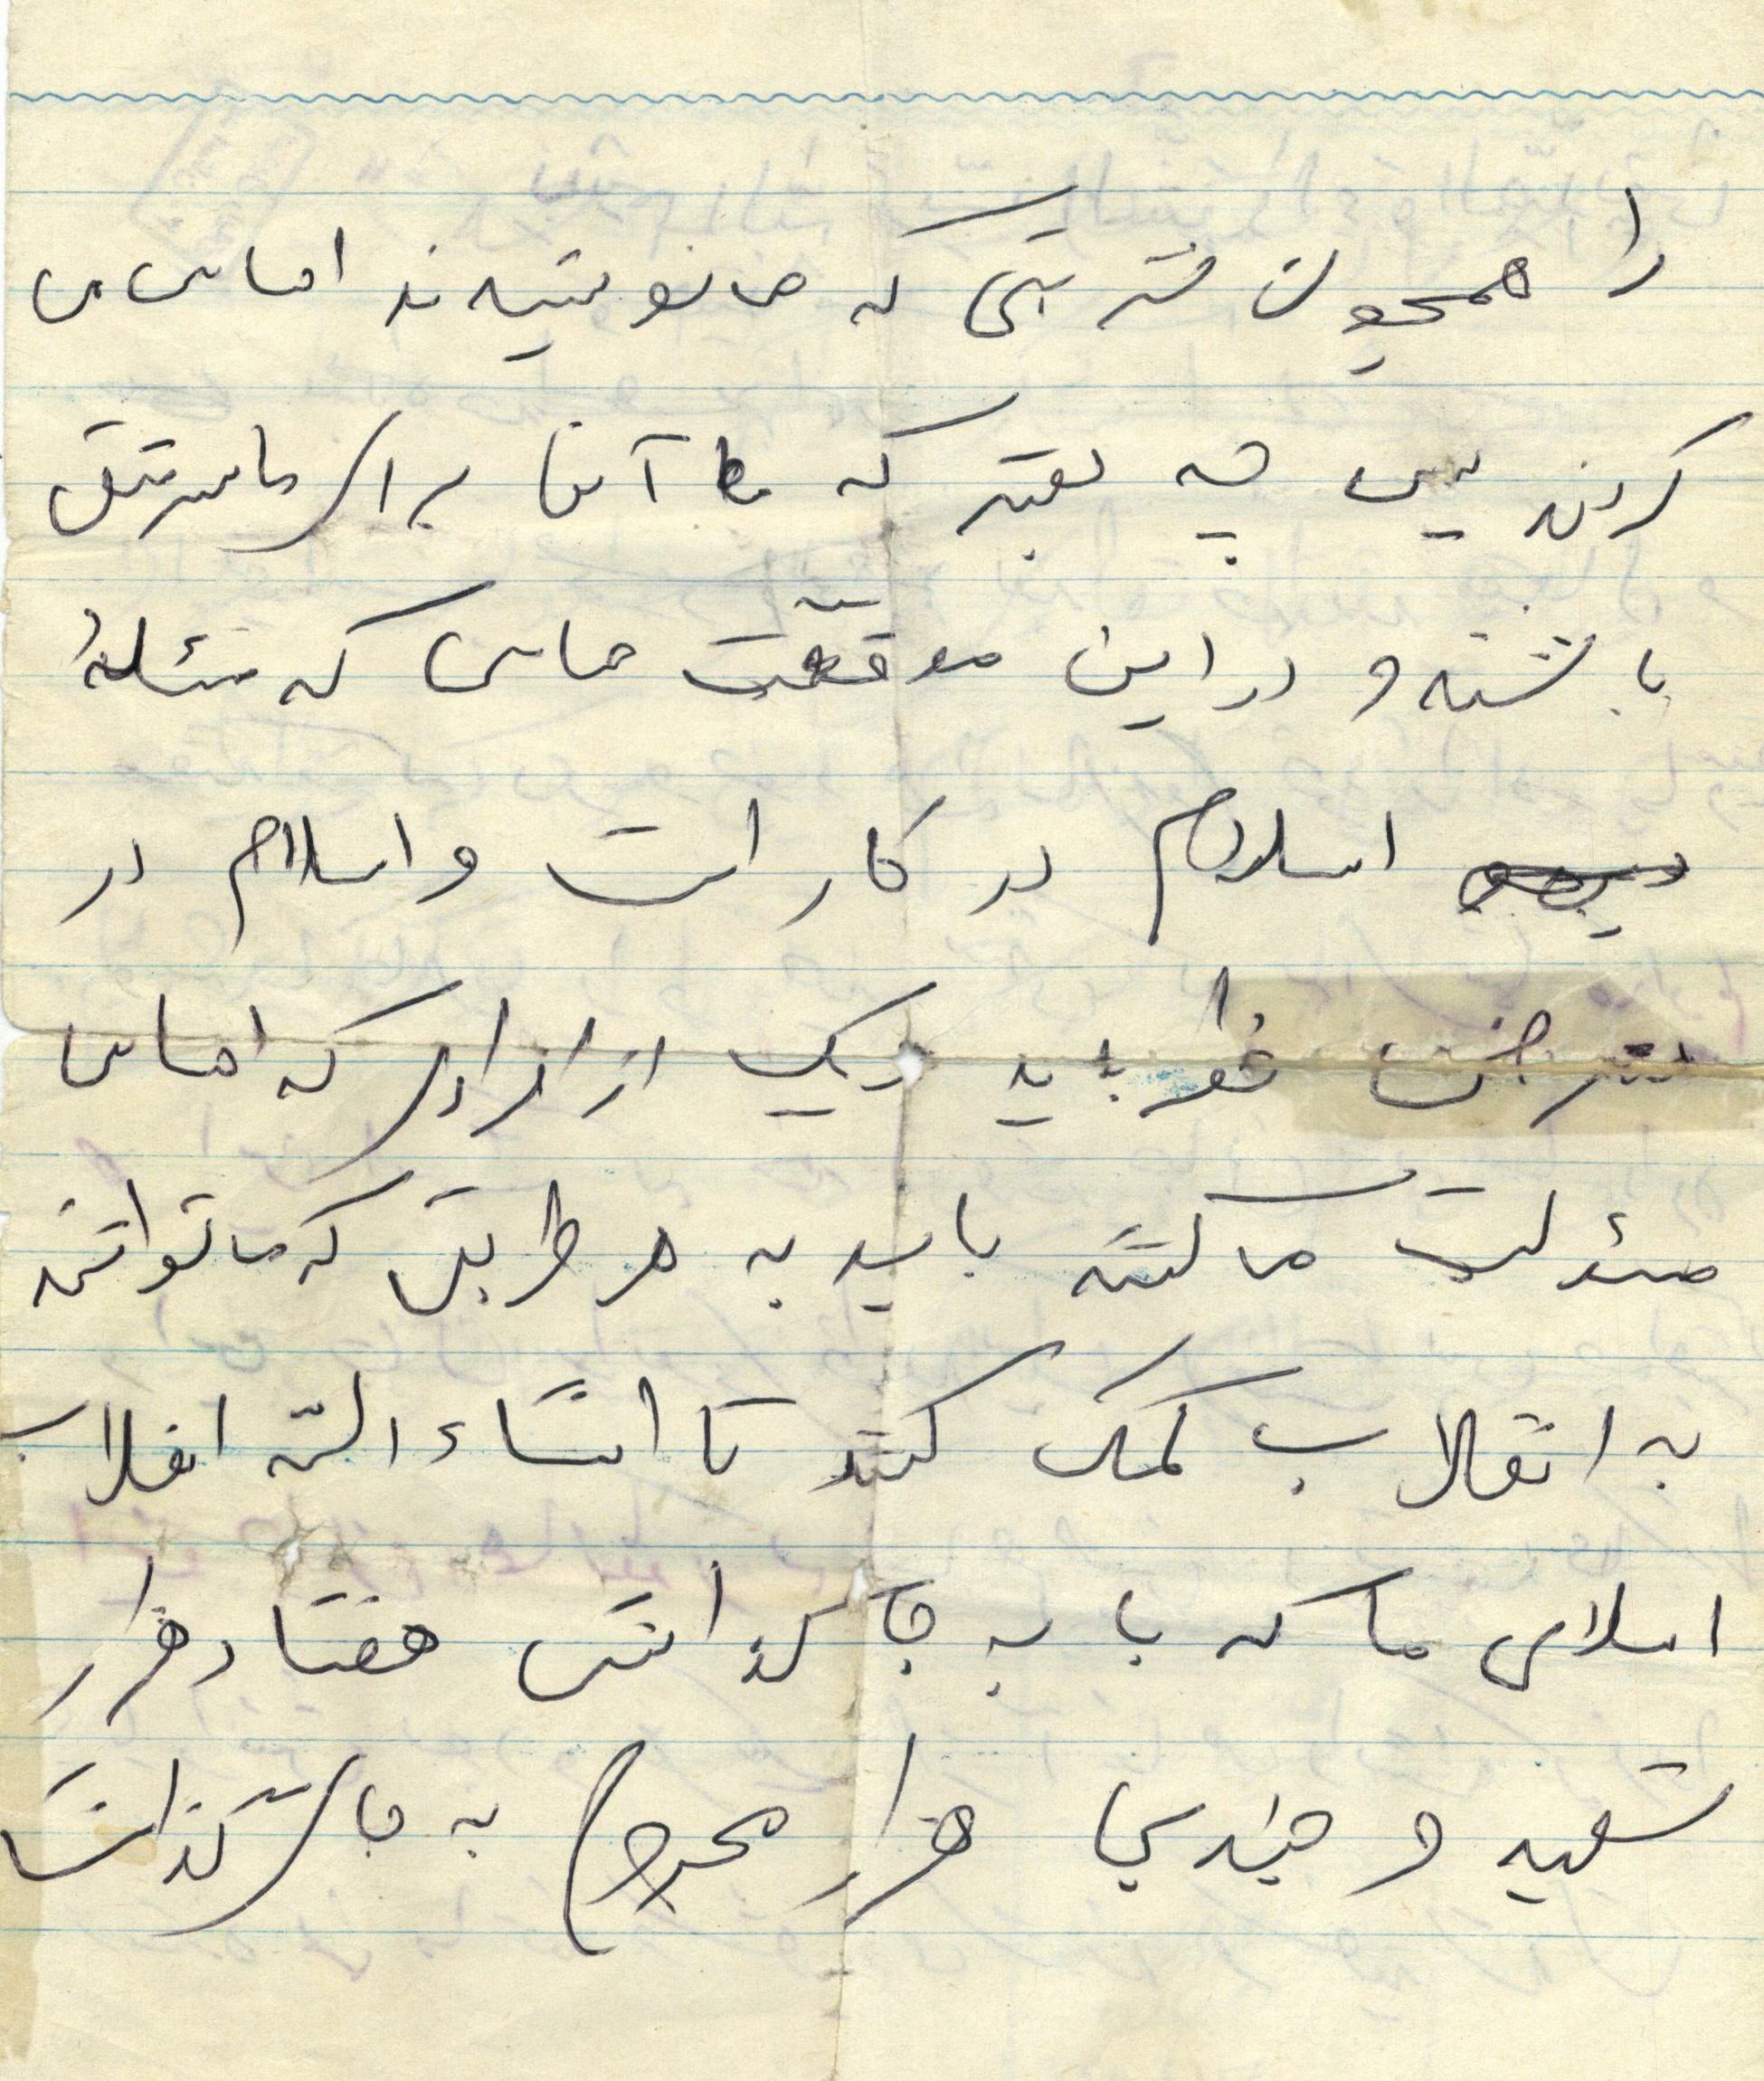 را همچون شربتی که می‌نوشیدند احساس می
کردند پس چه بهتر که ما آنها برای ما سرمشق
باشند و در این موقعیت حساس که مسئلهٔ
اسلام در کار است و اسلام در
معرض خطر باید هر یک از افرادی که احساس
مسئولیت می کنند باید به هر طریقی که می توانند
به انقلاب کمک کنند تا انشاء الله انقلاب
اسلامی ما که با به جا گذاشتن هفتاد هزار
شهید و چندین هزار مجروح به جای گذاشت